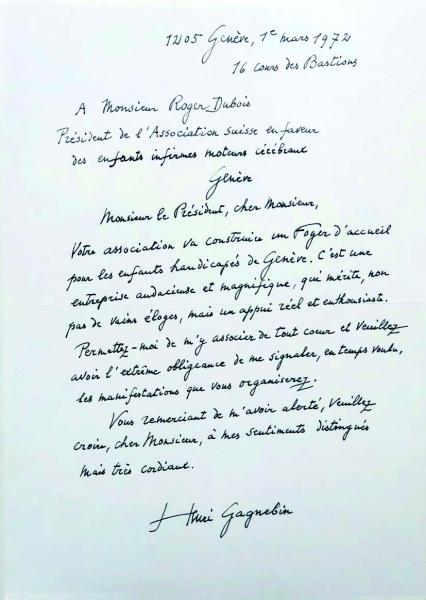 1205 Genève, 1e mars 1972
16 cours des Bastions
A Monsieur Roger Dubois
Président de l'Association suisse en faveur
des enfants infirmes moteurs cérébraux
Genève
Monsieur le Président, cher Monsieur,
Votre association va construire un Foyer d'accueil
pour les enfants handicapés de Genève. C'est une
entreprise audacieuse et magnifique, qui mérite, non
pas de vains éloges, mais un appui réel et enthousiaste.
Permettez-moi de m'y associer de tout coeur et veuillez
avoir l'extrême obligeance de me signaler, en temps voulu,
les manifestations que vous organiserez.
Vous remerciant de m'avoir alerté, veuillez
croire, cher Monsieur, à mes sentiments distingués
mais très cordiaux.
Henri Gagnebin